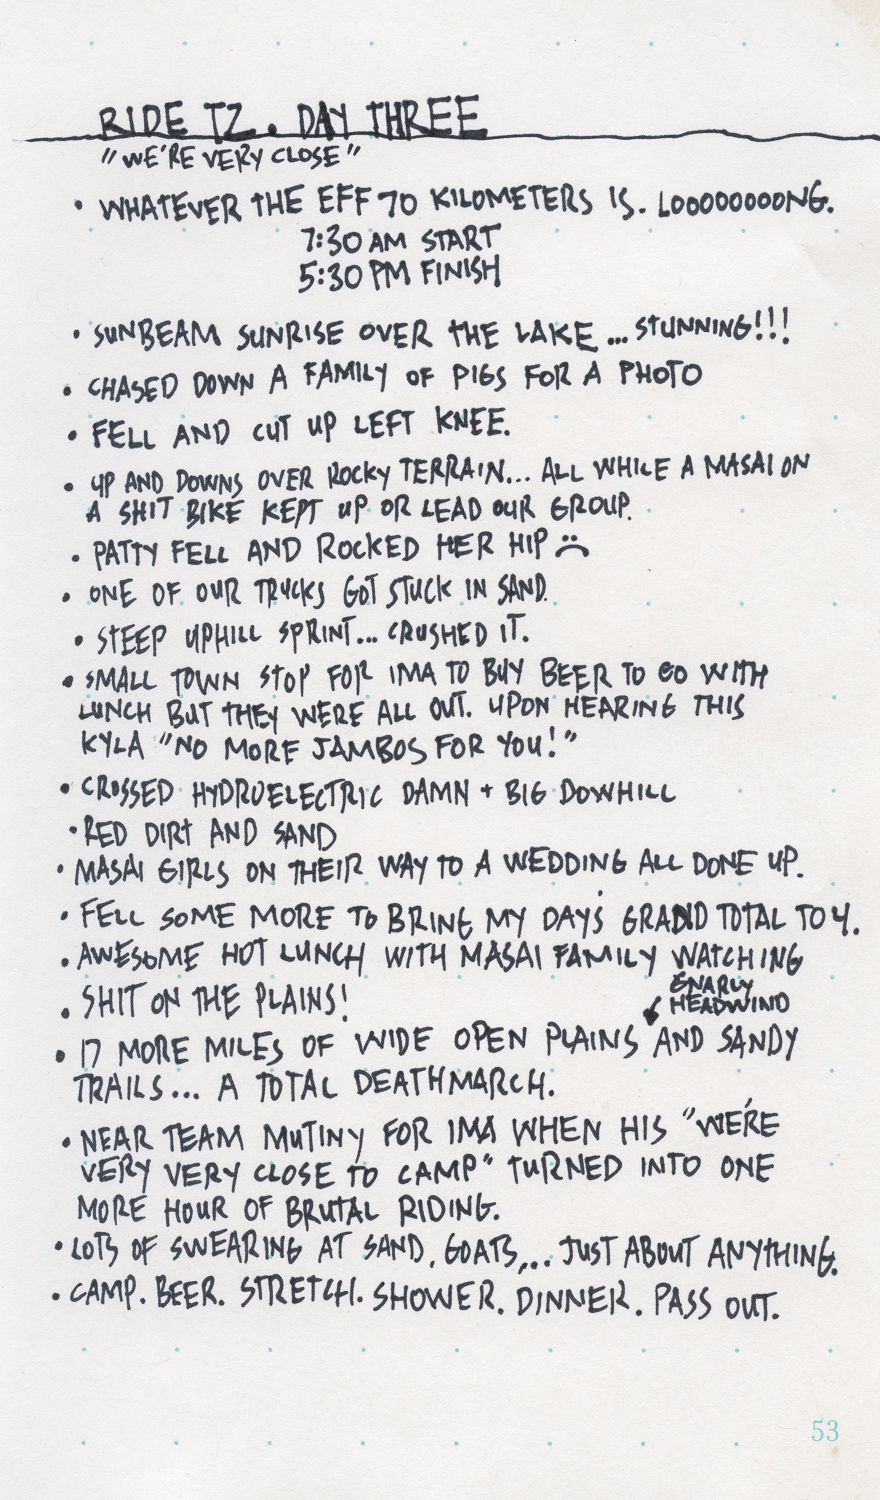 RIDE TZ. DAY THREE
"WE'RE VERY CLOSE"
• WHATEVER THE EFF 70 KILOMETERS IS. LOOOOOOOONG.
7:30 AM START
5:30 PM FINISH
• SUNBEAM SUNRISE OVER THE LAKE ... STUNNING!!!
• CHASED DOWN A FAMILY OF PIGS FOR A PHOTO
• FELL AND CUT UP LEFT KNEE.
• UP AND DOWNS OVER ROCKY TERRAIN... ALL WHILE A MASAI ON
A SHIT BIKE KEPT UP OR LEAD OUR GROUP.
• PATTY FELL AND ROCKED HER HIP :(
• ONE OF OUR TRUCKS GOT STUCK IN SAND.
• STEEP UPHILL SPRINT... CRUSHED IT.
• SMALL TOWN STOP FOR IMA TO BUY BEER TO GO WITH
LUNCH BUT THEY WERE ALL OUT. UPON HEARING THIS
KYLA "NO MORE JAMBOS FOR YOU!"
• CROSSED HYDROELECTRIC DAMN + BIG DOWHILL
• RED DIRT AND SAND
• MASAI GIRLS ON THEIR WAY TO A WEDDING ALL DONE UP.
• FELL SOME MORE TO BRING MY DAY'S GRAND TOTAL TO 4.
• AWESOME HOT LUNCH WITH MASAI FAMILY WATCHING
• SHIT ON THE PLAINS!
GNARLY
HEADWIND
• 17 MORE MILES OF WIDE OPEN PLAINS AND SANDY
TRAILS... A TOTAL DEATHMARCH.
• NEAR TEAM MUTINY FOR IMA WHEN HIS "WE'RE
VERY VERY CLOSE TO CAMP" TURNED INTO ONE
MORE HOUR OF BRUTAL RIDING.
• LOTS OF SWEARING AT SAND, GOATS,... JUST ABOUT ANYTHING.
• CAMP. BEER. STRETCH. SHOWER. DINNER. PASS OUT.
53